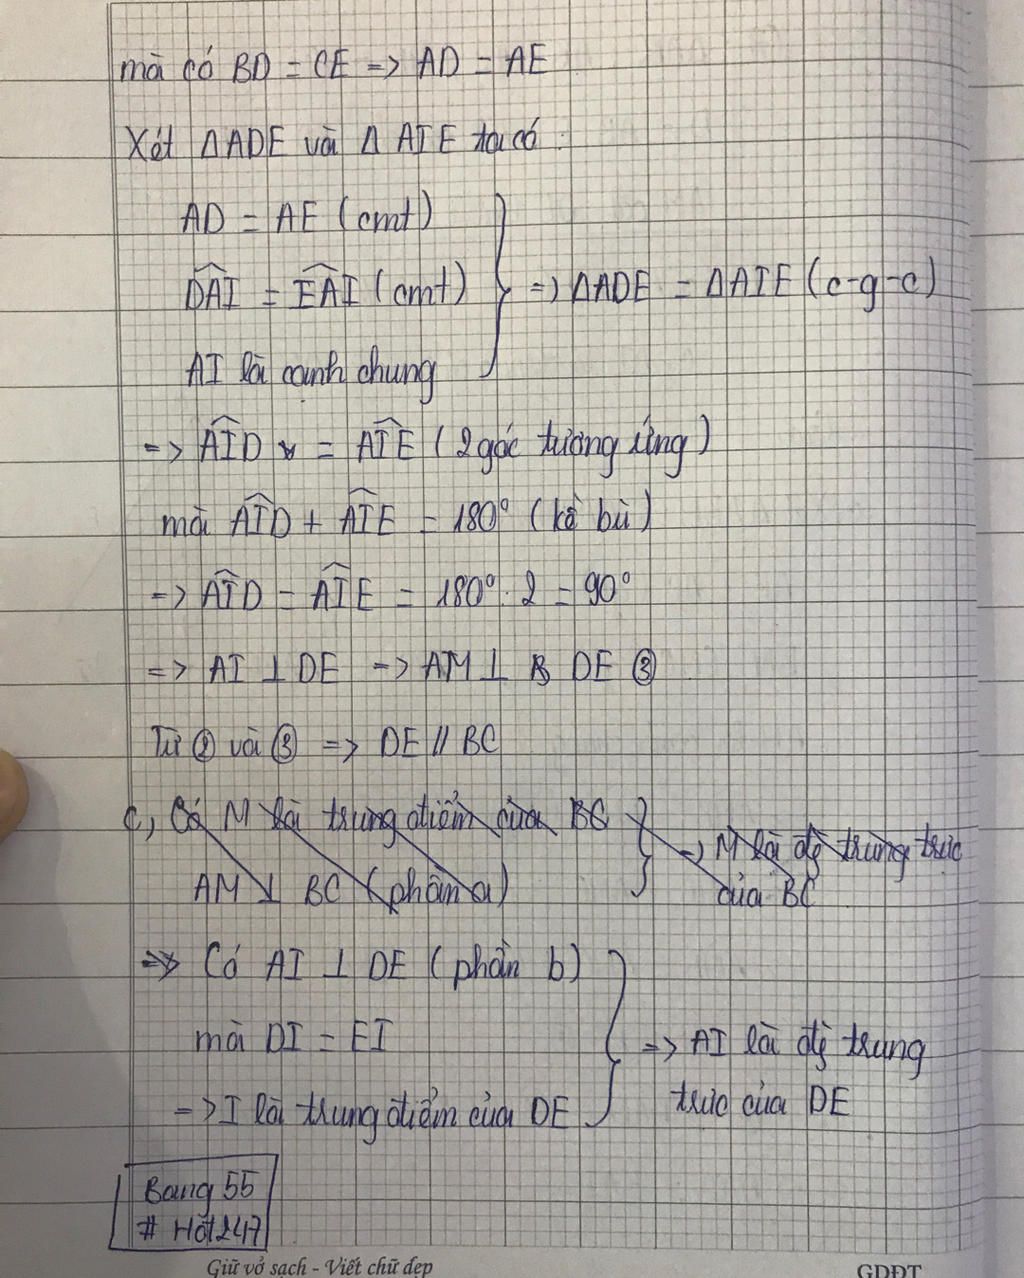 mà có BD = CE => AD = AE
Xét ΔADE và Δ AIE ta có :
AD = AE (cmt)
DAI = EAI (cmt)
=> ΔADE = ΔAIE (c-g-c)
AI là cạnh chung
=> AID = AIE (2 góc tương ứng)
mà AID + AIE = 180° (kề bù)
=> AID = AIE = 180° : 2 = 90°
=> AI ⊥ DE => AM ⊥ DE ③
Từ ② và ③ => DE // BC
c, Có M là trung điểm của BC
AM ⊥ BC (phần a)
=> M là đg trung trực
của BC
=> Có AI ⊥ DE (phần b)
mà DI = EI
=> I là trung điểm của DE
=> AI là đg trung
trực của DE
Bang 55
# Hót247
Giữ vở sạch - Viết chữ đẹp
GDĐT